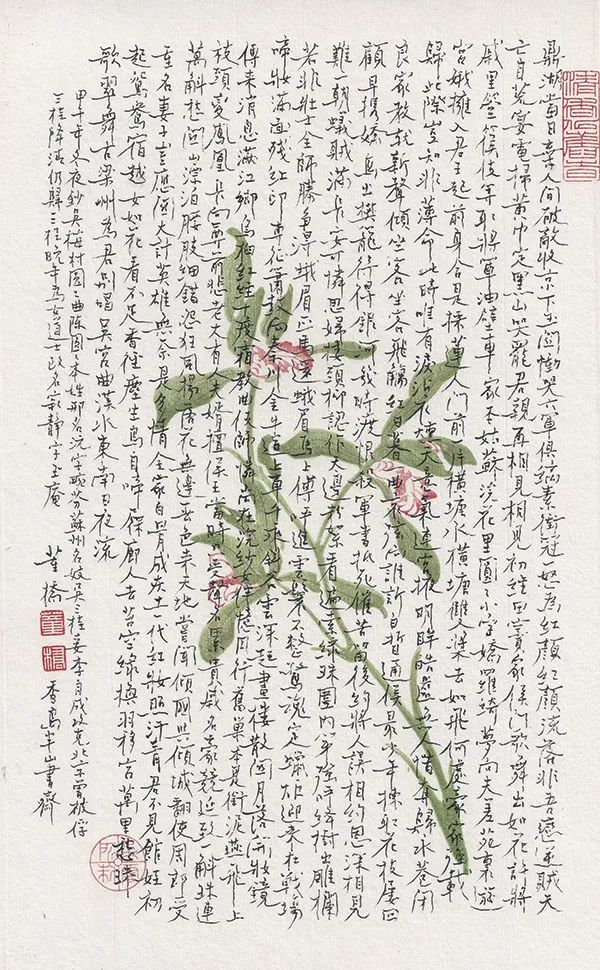 鼎湖當日棄人間破敵收京下玉關慟哭六軍俱縞素衝冠一怒為紅顏紅顏流落非吾戀逆賊天
亡自荒宴電掃黃巾定黑山哭罷君親再相見相見初經田竇家侯門歌舞出如花許將
戚里箜篌伎等取將軍油壁車家本姑蘇浣花里圓圓小字嬌羅綺夢向夫差苑裏遊
宮娥擁入君王起前身合是採蓮人門前一片橫塘水橫塘雙槳去如飛何處豪家強載
歸此際豈知非薄命此時唯有淚沾衣熏天意氣連宮掖明眸皓齒無人惜奪歸永巷閉
良家教就新聲傾坐客坐客飛觴紅日暮一曲哀弦向誰訴白皙通侯最少年揀取花枝屢回
顧早攜嬌鳥出樊籠待得銀河幾時渡恨殺軍書抵死催苦留後約將人誤相約恩深相見
難一朝蟻賊滿長安可憐思婦樓頭柳認作天邊粉絮看遍索綠珠圍內第強呼絳樹出雕欄
若非壯士全師勝爭得蛾眉匹馬還蛾眉馬上傳呼進雲鬟不整驚魂定蠟炬迎來在戰場
啼妝滿面殘紅印專征簫鼓向秦川金牛道上車千乘斜谷雲深起畫樓散關月落開妝鏡
傳來消息滿江鄉烏桕紅經十度霜教曲伎師憐尚在浣紗女伴憶同行舊巢本是銜泥燕飛上
枝頭變鳳凰長向尊前悲老大有人夫婿擅侯王當時受聲名累貴戚名豪競延致一斛珠連
萬斛愁關山漂泊腰肢細錯怨狂風揚落花無邊春色來天地嘗聞傾國與傾城翻使周郎受
重名妻子豈應關大計英雄無奈是多情全家白骨成灰土一代紅妝照汗青君不見館娃初
起鴛鴦宿越女如花看不足香徑塵生烏自啼屧廊人去苔空綠換羽移宮萬里愁珠
歌翠舞古梁州為君別唱吳宮曲漢水東南日夜流
甲午年冬夜鈔吳梅村圓圓曲陳圓圓本姓邢名沅字畹芬蘇州名妓吳三桂妾李自成攻克北京曾被俘
三桂降清仍歸三桂晚年為女道士改名寂靜字玉庵
董橋
董
橋
香島半山書齋